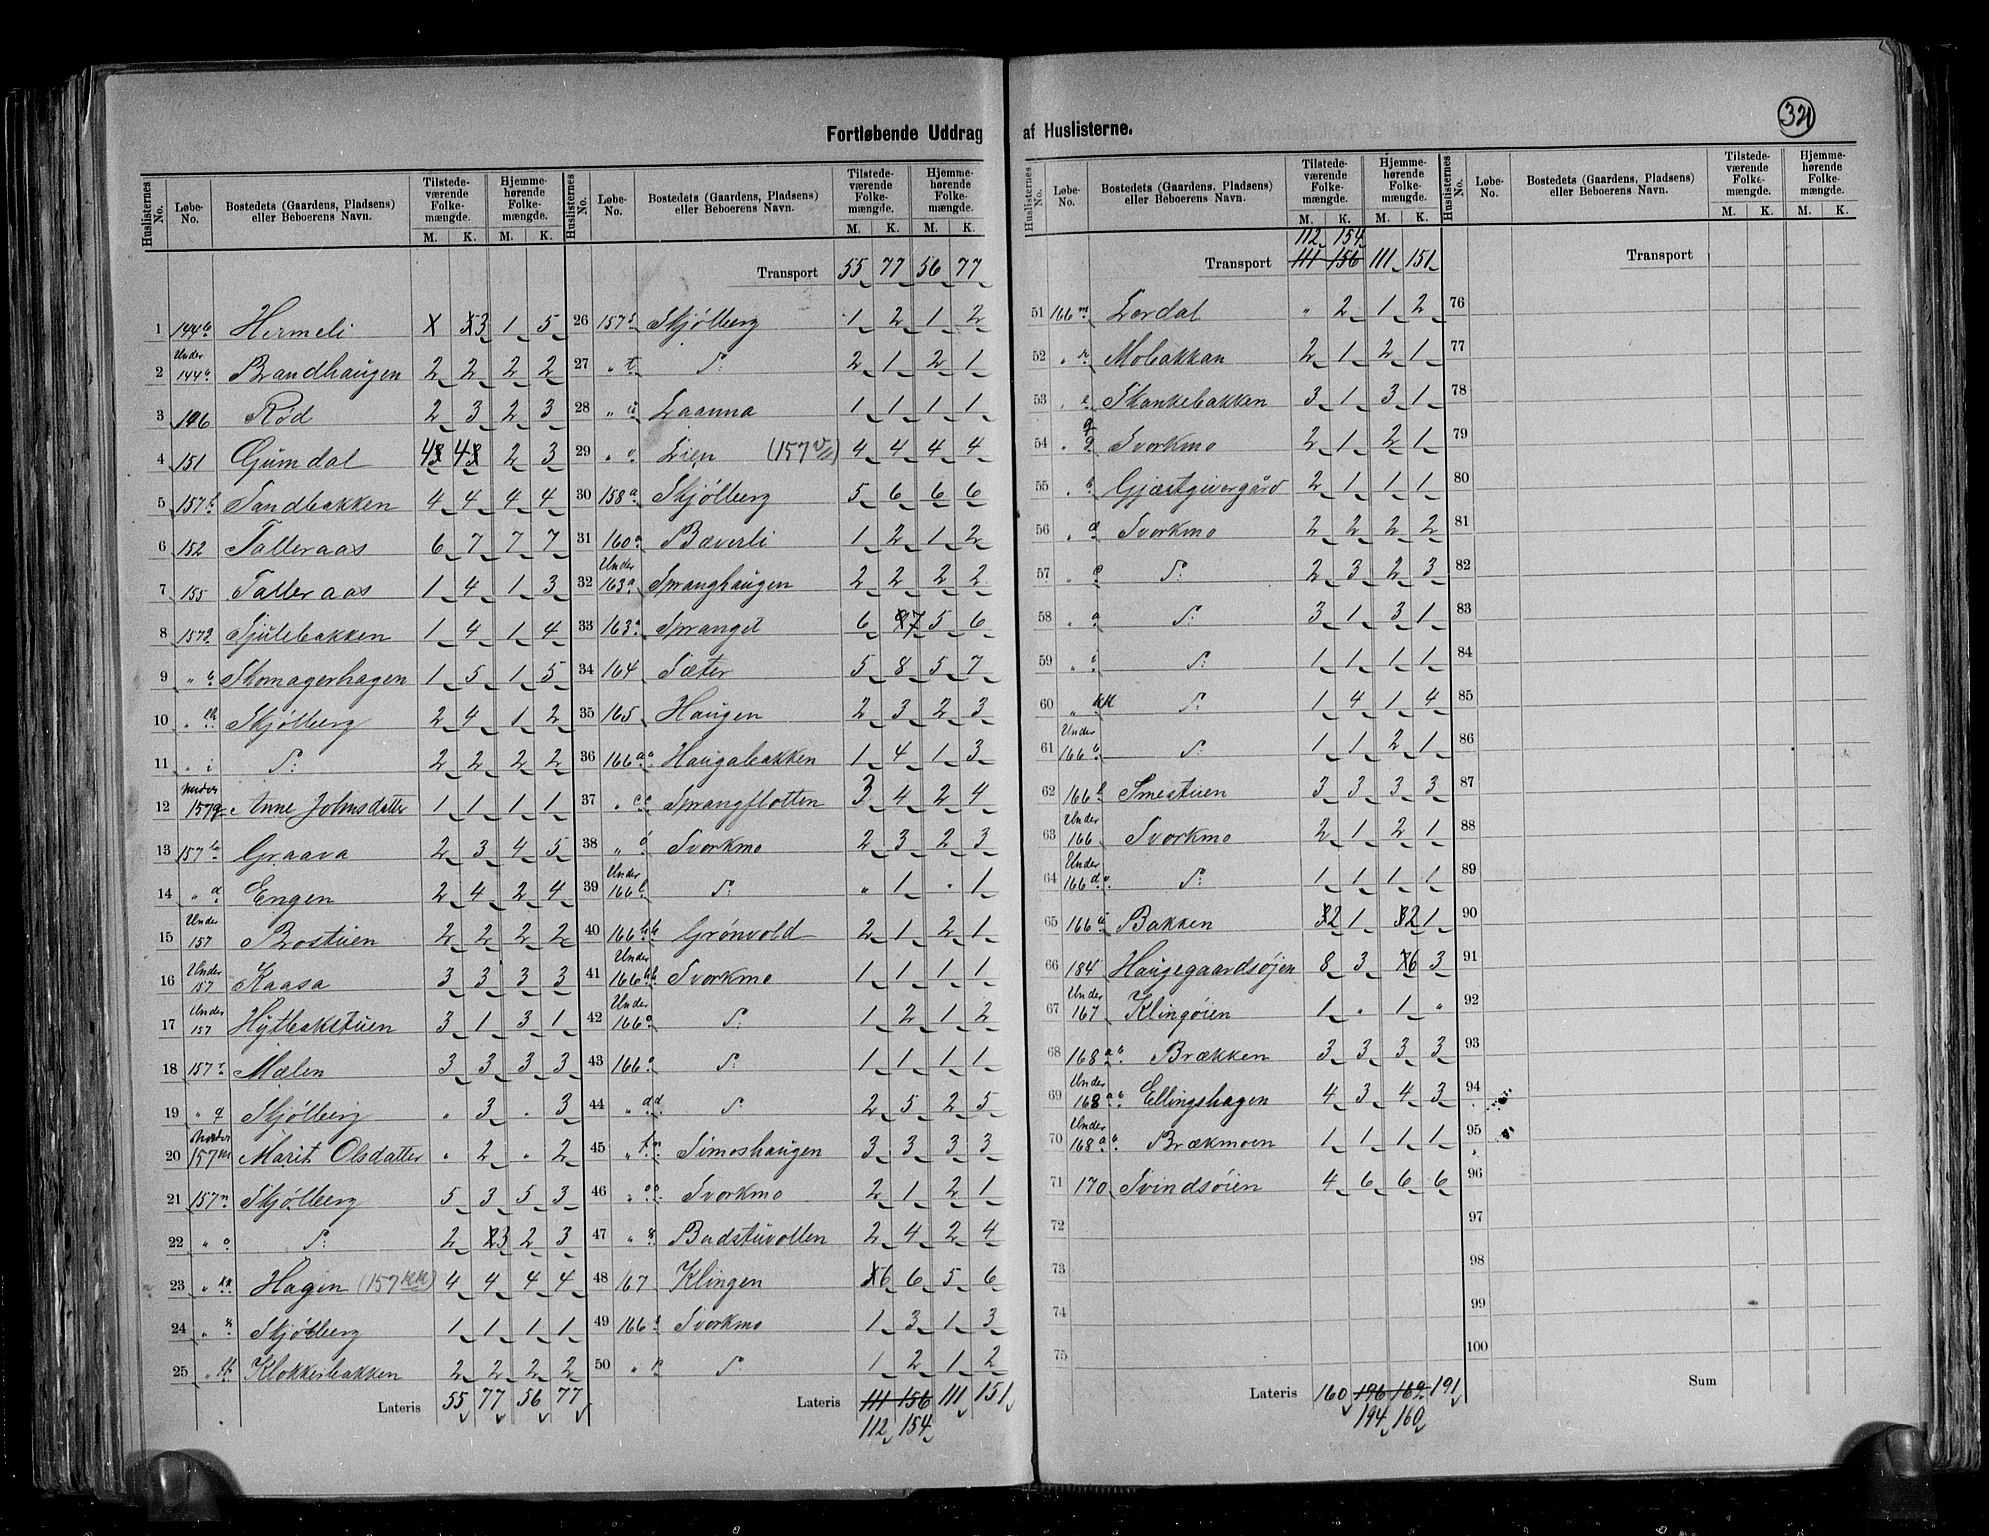 321
Fortløbende Uddrag af Huslisterne.
Huslisternes No. Løbe-No. Bostedets (Gaardens, Pladsens) eller Beboerens Navn. Tilstedeværende Folkemængde. M. K. Hjemmehørende Folkemængde. M. K.
1 144 Hermeli 3 1 5
2 Under 144 Brandhaugen 2 2 2 2
3 146 Rød 2 3 2 3
4 151 Gumdal 4 4 2 3
5 157 Sandbakken 4 4 4 4
6 152 Talleraas 6 7 7 7
7 155 Talleraas 1 4 1 3
8 157 Sjulebakken 1 4 1 4
9 " Skomagerhagen 1 5 1 5
10 " Skjølberg 2 4 1 2
11 " i S: 2 2 2 2
12 Under 157g Anne Johnsdatter 1 1 1 1
13 157 Graava 2 3 4 5
14 " d Engen 2 4 2 4
15 Under 157 Bostuen 2 2 2 2
16 Under 157 Kaasa 3 3 3 3
17 Under 157 Hytbakstuen 3 1 3 1
18 157 Mælen 3 3 3 3
19 " q Skjølberg " 3 " 3
20 Under 157m Marit Olsdatter " 2 " 2
21 157n Skjølberg 5 3 5 3
22 " o S: 2 3 2 3
23 " Hagen (157kk) 4 4 4 4
24 " Skjølberg 1 1 1 1
25 " Klokkerbakken 2 2 2 2
Lateris 55 77 56 77
Huslisternes No. Løbe-No. Bostedets (Gaardens, Pladsens) eller Beboerens Navn. Tilstedeværende Folkemængde. M. K. Hjemmehørende Folkemængde. M. K.
Transport 55 77 56 77
26 157 Skjølberg 1 2 1 2
27 " t S: 2 1 2 1
28 " u Laanna 1 1 1 1
29 " v Lien (157v) 4 4 4 4
30 158a Skjølberg 5 6 6 6
31 160a Bæverli 1 2 1 2
32 Under 163a Spranghaugen 2 2 2 2
33 163a Spranget 6 7 5 6
34 164 Sæter 5 8 5 7
35 165 Haugen 2 3 2 3
36 166 Haugabakken 1 4 1 3
37 " cc Sprangflotten 3 4 2 4
38 " Svorkmo 2 3 2 3
39 Under 166 S: " 1 " 1
40 166 Grønvold 2 1 2 1
41 Under 166 Svorkmo 1 1 1 1
42 Under 166 S: 1 2 1 2
43 166 S: 1 1 1 1
44 " dd S: 2 5 2 5
45 " Simoshaugen 3 3 3 3
46 " Svorkmo 2 1 2 1
47 " Badstuvollen 2 4 2 4
48 67 Klingen 6 6 5 6
49 166 Svorkmo 1 3 1 3
50 " S: 1 2 1 2
Lateris 111 156 111 151
112 154
Huslisternes No. Løbe-No. Bostedets (Gaardens, Pladsens) eller Beboerens Navn. Tilstedeværende Folkemængde. M. K. Hjemmehørende Folkemængde. M. K.
112 154
Transport 111 156 111 151
51 166m Lerdal " 2 1 2
52 " Mobakkan 2 1 2 1
53 " Skankebakken 3 1 3 1
54 " q Svorkmo 2 1 2 1
55 " Gjæstgivergård 2 1 1 1
56 " Svorkmo 2 2 2 2
57 " S: 2 3 2 3
58 " S: 3 1 3 1
59 " S: 1 1 1 1
60 " S: 1 4 1 4
61 Under 166 S: 1 1 2 1
62 166 Smestuen 3 3 3 3
63 Under 166 Svorkmo 2 1 2 1
64 Under 166d S: 1 1 1 1
65 166 Bakken 2 1 2 1
66 184 Haugegaardsøjen 8 3 6 3
67 Under 167 Klingøien 1 " 1 "
68 168 Brækken 3 3 3 3
69 Under 168 Ellingshagen 4 3 4 3
70 Under 168 Brækmoen 1 1 1 1
71 170 Svindsøien 4 6 6 6
72
73
74
75
Lateris 160 196 162 191
194 160
Huslisternes No. Løbe-No. Bostedets (Gaardens, Pladsens) eller Beboerens Navn. Tilstedeværende Folkemængde. M. K. Hjemmehørende Folkemængde. M. K.
Transport
76
77
78
79
80
81
82
83
84
85
86
87
88
89
90
91
92
93
94
95
96
97
98
99
100
Sum